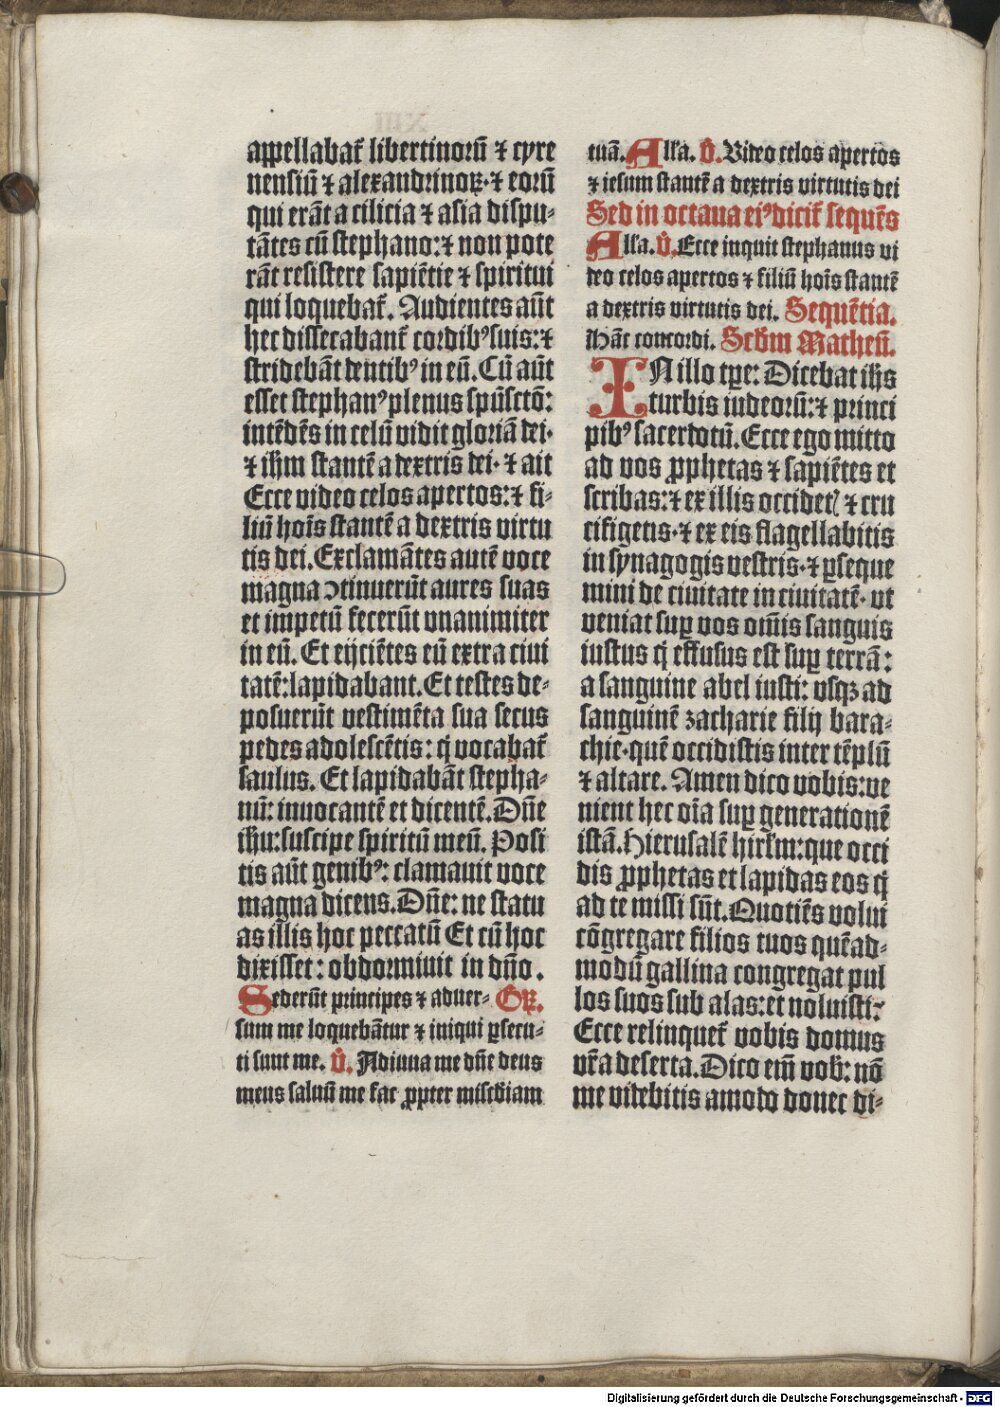 appellabat᷒ libertinoꝝ̃ ⁊ cyre
nensiũ ⁊ alexandrinoꝝ·⁊ eorũ
qui erãt a cilicia ⁊ asia dispu-
tãtes cũ stephano:⁊ non pote
rãt resistere sapiẽtie ⁊ spiritui
qui loquebat᷒. Audientes aũt
hec dissecabant᷒ cordibꝰ suis:⁊
stridebãt dentibꝰ in eũ. Cũ aũt
esset stephanꝰ plenus spũsctõ:
intẽdẽs in celũ vidit gloriã dei·
⁊ ihm̃ stantẽ a dextris dei·⁊ ait
Ecce video celos apertos:⁊ fi-
liũ hoĩs stantẽ a dextris virtu
tis dei. Exclamãtes autẽ voce
magna ꝯtinuerũt aures suas
et impetũ fecerũt vnanimiter
in eũ. Et eijciẽtes eũ extra ciui
tatẽ:lapidabant. Et testes de-
posuerũt vestimẽta sua secus
pedes adolescẽtis: q̃ vocabat᷒
saulus. Et lapidabãt stepha-
nũ: inuocantẽ et dicentẽ. Dñe
ihũ:suscipe spiritũ meũ. Posi
tis aũt genibꝰ: clamauit voce
magna dicens. Dñe: ne statu
as illis hoc peccatũ Et cũ hoc
dixisset: obdormiuit in dño.
Sederũt principes ⁊ aduer- Gꝝ.
sum me loquebãtur ⁊ iniqui ꝑsecu-
ti sunt me. v̊. Adiuua me dñe deus
meus saluũ me fac ꝓpter mĩscðiam
tuã. Alla. v̊. Video celos apertos
⁊ iesum stantẽ a dextris virtutis dei
Sed in octaua eiꝰ dicit᷒ sequẽs
Alla. v̊. Ecce inquit stephanus vi
deo celos apertos ⁊ filiũ hoĩs stantẽ
a dextris virtutis dei. Sequẽtia.
Hãc concordi. Scðm Matheũ.
IN illo tꝑe: Dicebat ihs̃
turbis iudeorũ:⁊ princi
pibꝰ sacerdotũ. Ecce ego mitto
ad vos ꝓphetas ⁊ sapiẽtes et
scribas:⁊ ex illis occidetꝭ ⁊ cru
cifigetis·⁊ ex eis flagellabitis
in synagogis vestris·⁊ ꝑseque
mini de ciuitate in ciuitatẽ· vt
veniat suꝑ vos om̃is sanguis
iustus q̃ effusus est suꝑ terrã:
a sanguine abel iusti: vsqꝫ ad
sanguinẽ zacharie filij bara-
chie·quẽ occidistis inter tẽplũ
⁊ altare. Amen dico vobis:ve
nient hec oĩa suꝑ generationẽ
istã. Hierusalẽ hirl̃m:que occi
dis ꝓphetas et lapidas eos q̃
ad te missi sũt. Quotiẽs volui
cõgregare filios tuos quẽad-
modũ gallina congregat pul
los suos sub alas:et noluisti?
Ecce relinquet᷒ vobis domus
vr̃a deserta. Dico em̃ vob̃: nõ
me videbitis amodo donec di-
Digitalisierung gefördert durch die Deutsche Forschungsgemeinschaft - DFG